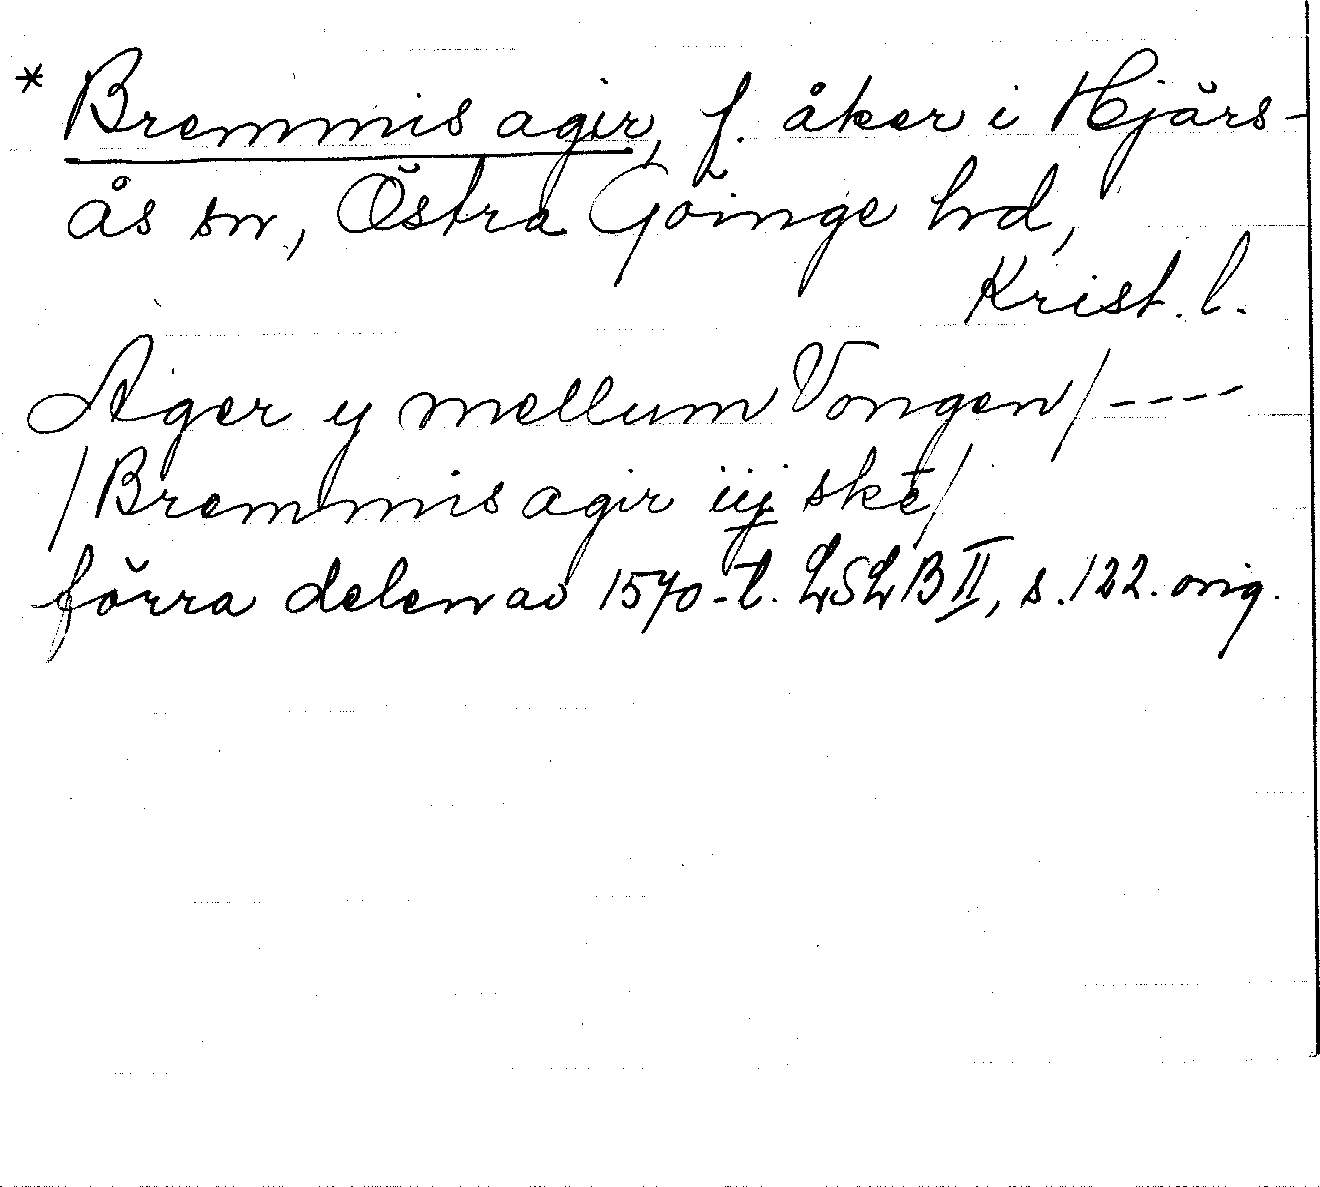 * Bremmis agir, f. åker i Hjärs-
ås sn, Östra Göinge hd,
Krist. l.
Ager y mellum Vongen/----
/Bremmis agir iij skē/
förra delen av 1570-t. LSLB II, s. 122. orig.